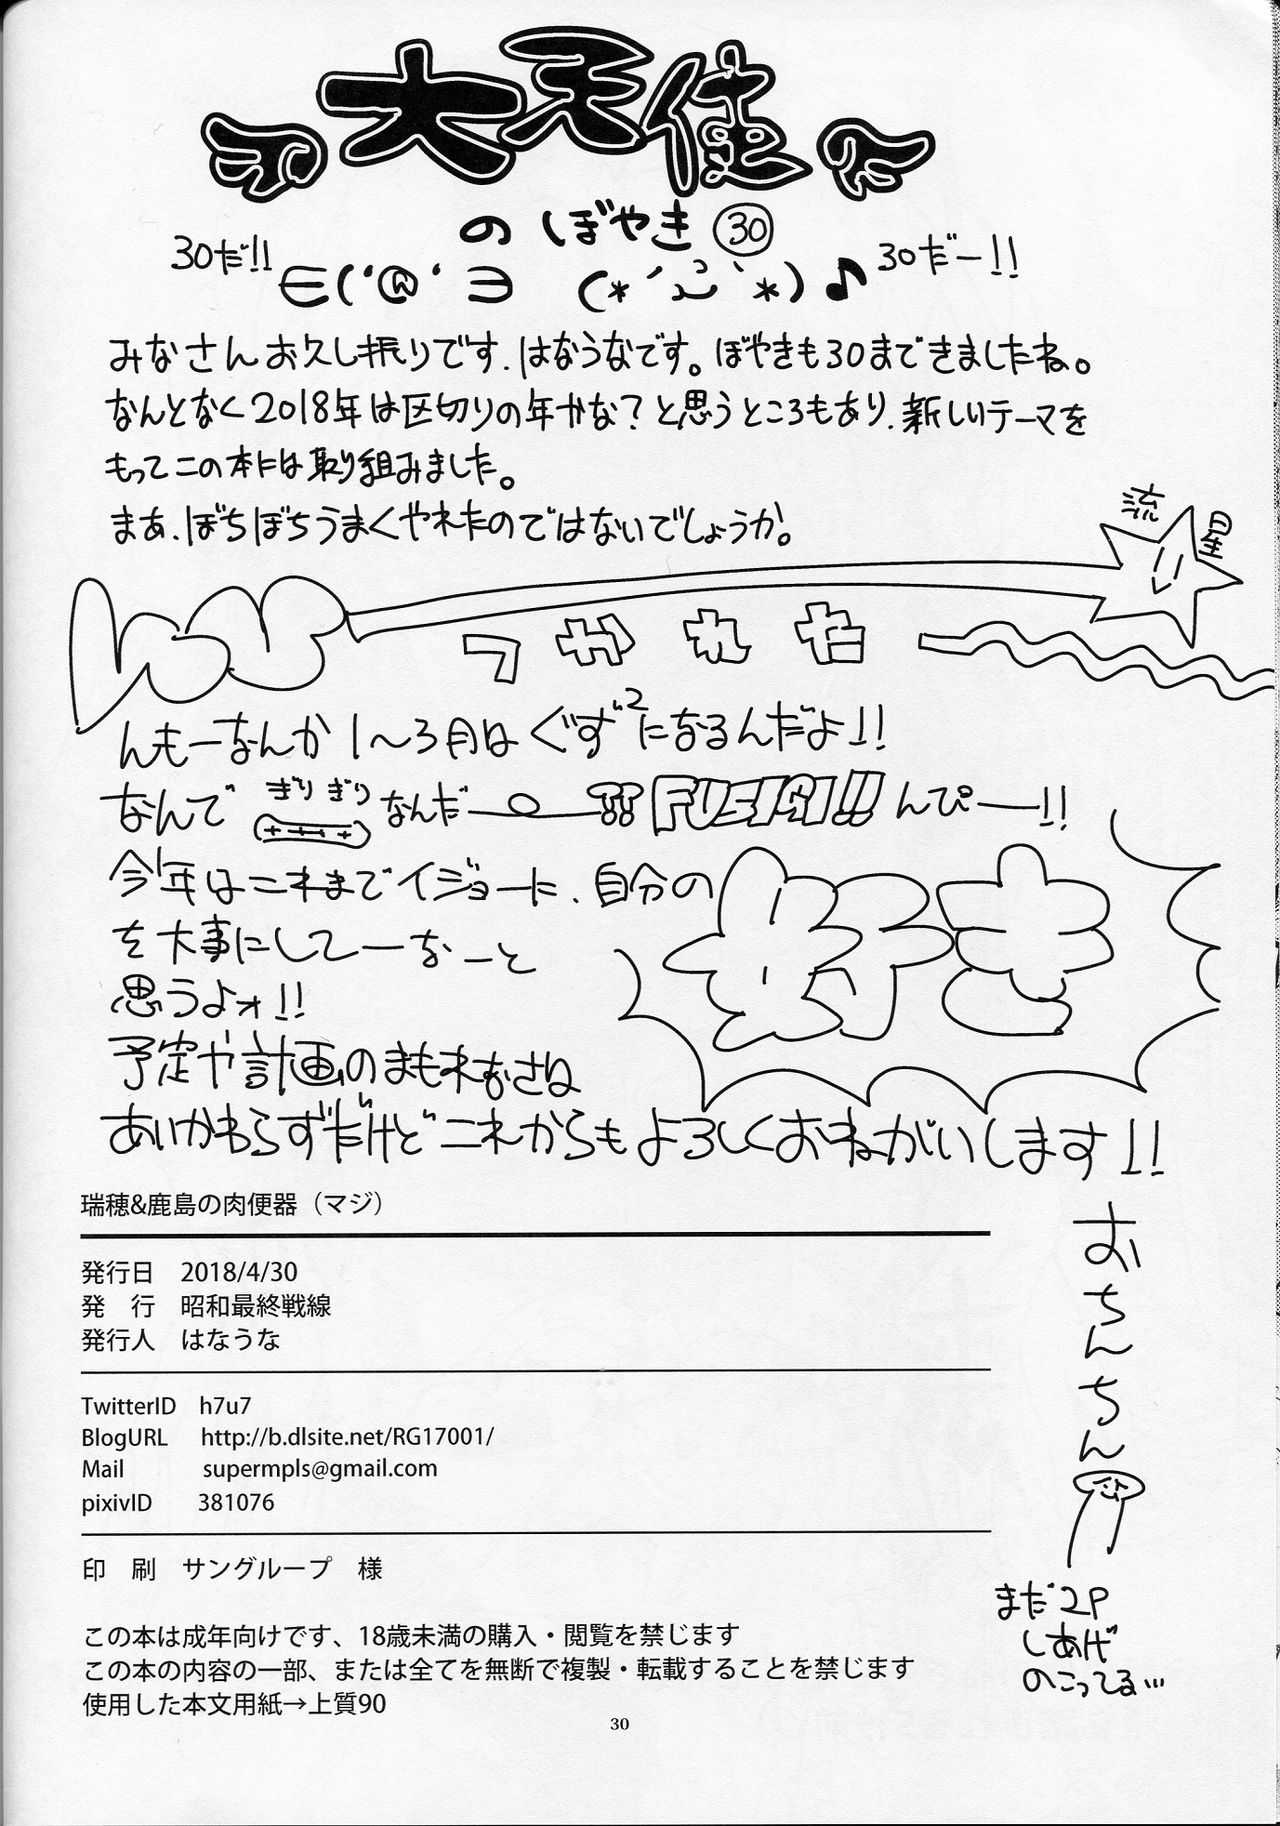 大天使
のぼやき㉚
30だ!!
∈('@' ∋ (*´ω`*)♪
30だー!!
みなさんお久し振りです.はなうなです。ぼやきも30まできましたね。
なんとなく2018年は区切りの年かな?と思うところもあり.新しいテーマを
もってこの本には取り組みました。
まあ.ぼちぼちうまくやれたのではないでしょうか。
流星
つかれた
んもーなんか1〜3月はぐず²になるんだよ!!
なんでぎりぎりなんだー⁇FUSION!!んぴー!!
今年はこれまでイジョーに.自分の
好き
を大事にしてーなーと
思うよォ!!
予定や計画のまもれなさは
あいかわらずだけどこれからもよろしくおねがいします!!
瑞穂&鹿島の肉便器（マジ）
発行日 2018/4/30
発 行 昭和最終戦線
発行人 はなうな
TwitterID h7u7
BlogURL http://b.dlsite.net/RG17001/
Mail supermpls@gmail.com
pixivID 381076
印 刷 サングループ 様
この本は成年向けです、18歳未満の購入・閲覧を禁じます
この本の内容の一部、または全てを無断で複製・転載することを禁じます
使用した本文用紙→上質90
おちんちん
まだ2P
しあげ
のこってる…
30